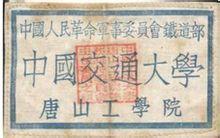 中國人民革命軍事委員會鐵道部
中國交通大學
唐山工學院